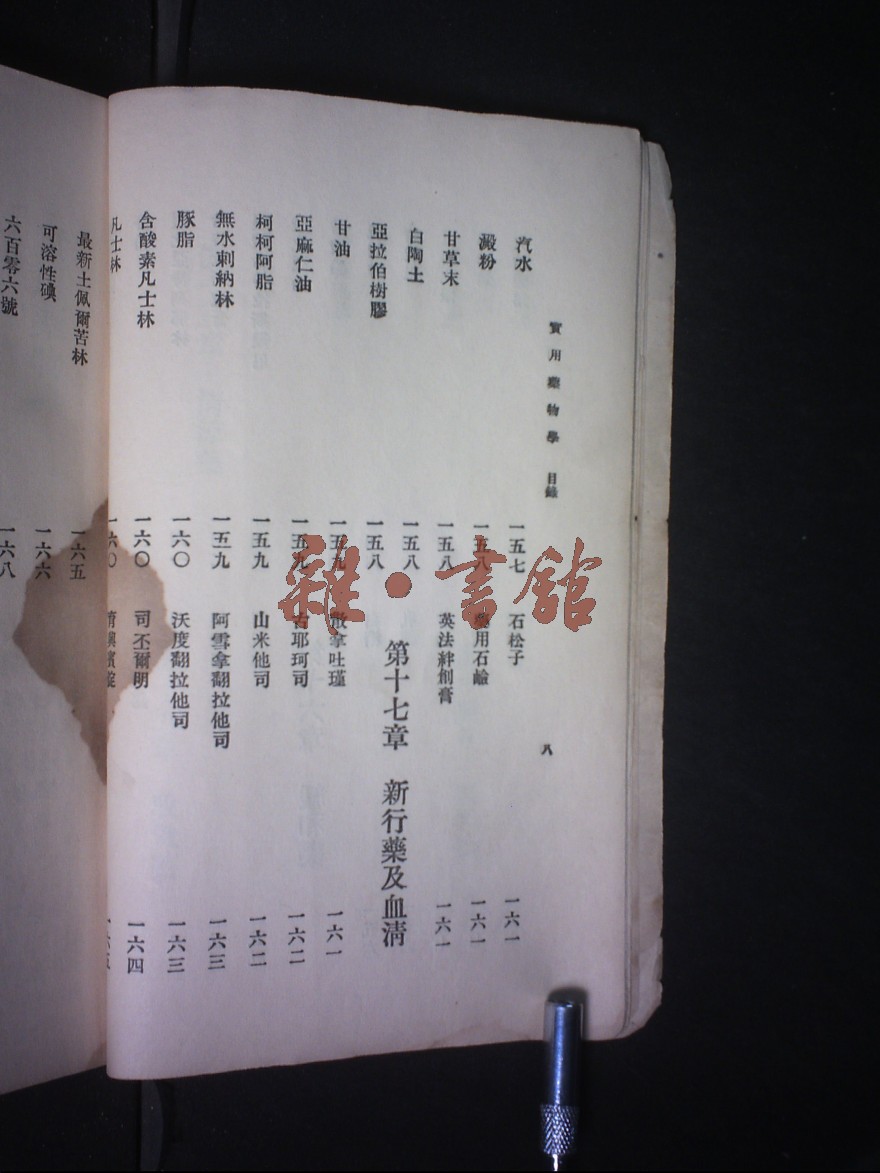 實用藥物學 目錄
八
汽水 一五七
澱粉 一五八
甘草末 一五八
白陶土 一五八
亞拉伯樹膠 一五八
甘油 一五九
亞麻仁油 一五九
柯柯阿脂 一五九
無水刺納林 一五九
豚脂 一六〇
含酸素凡士林 一六〇
凡士林 一六〇
石松子 一六一
藥用石鹼 一六一
英法絆創膏 一六一
第十七章 新行藥及血清
散拿吐瑾 一六一
古耶珂司 一六二
山米他司 一六二
阿雪拿翻拉他司 一六三
沃度翻拉他司 一六三
司丕爾明 一六四
賓錠 一六五
最新土佩爾苦林 一六五
可溶性碘 一六六
六百零六號 一六八
雜·書館